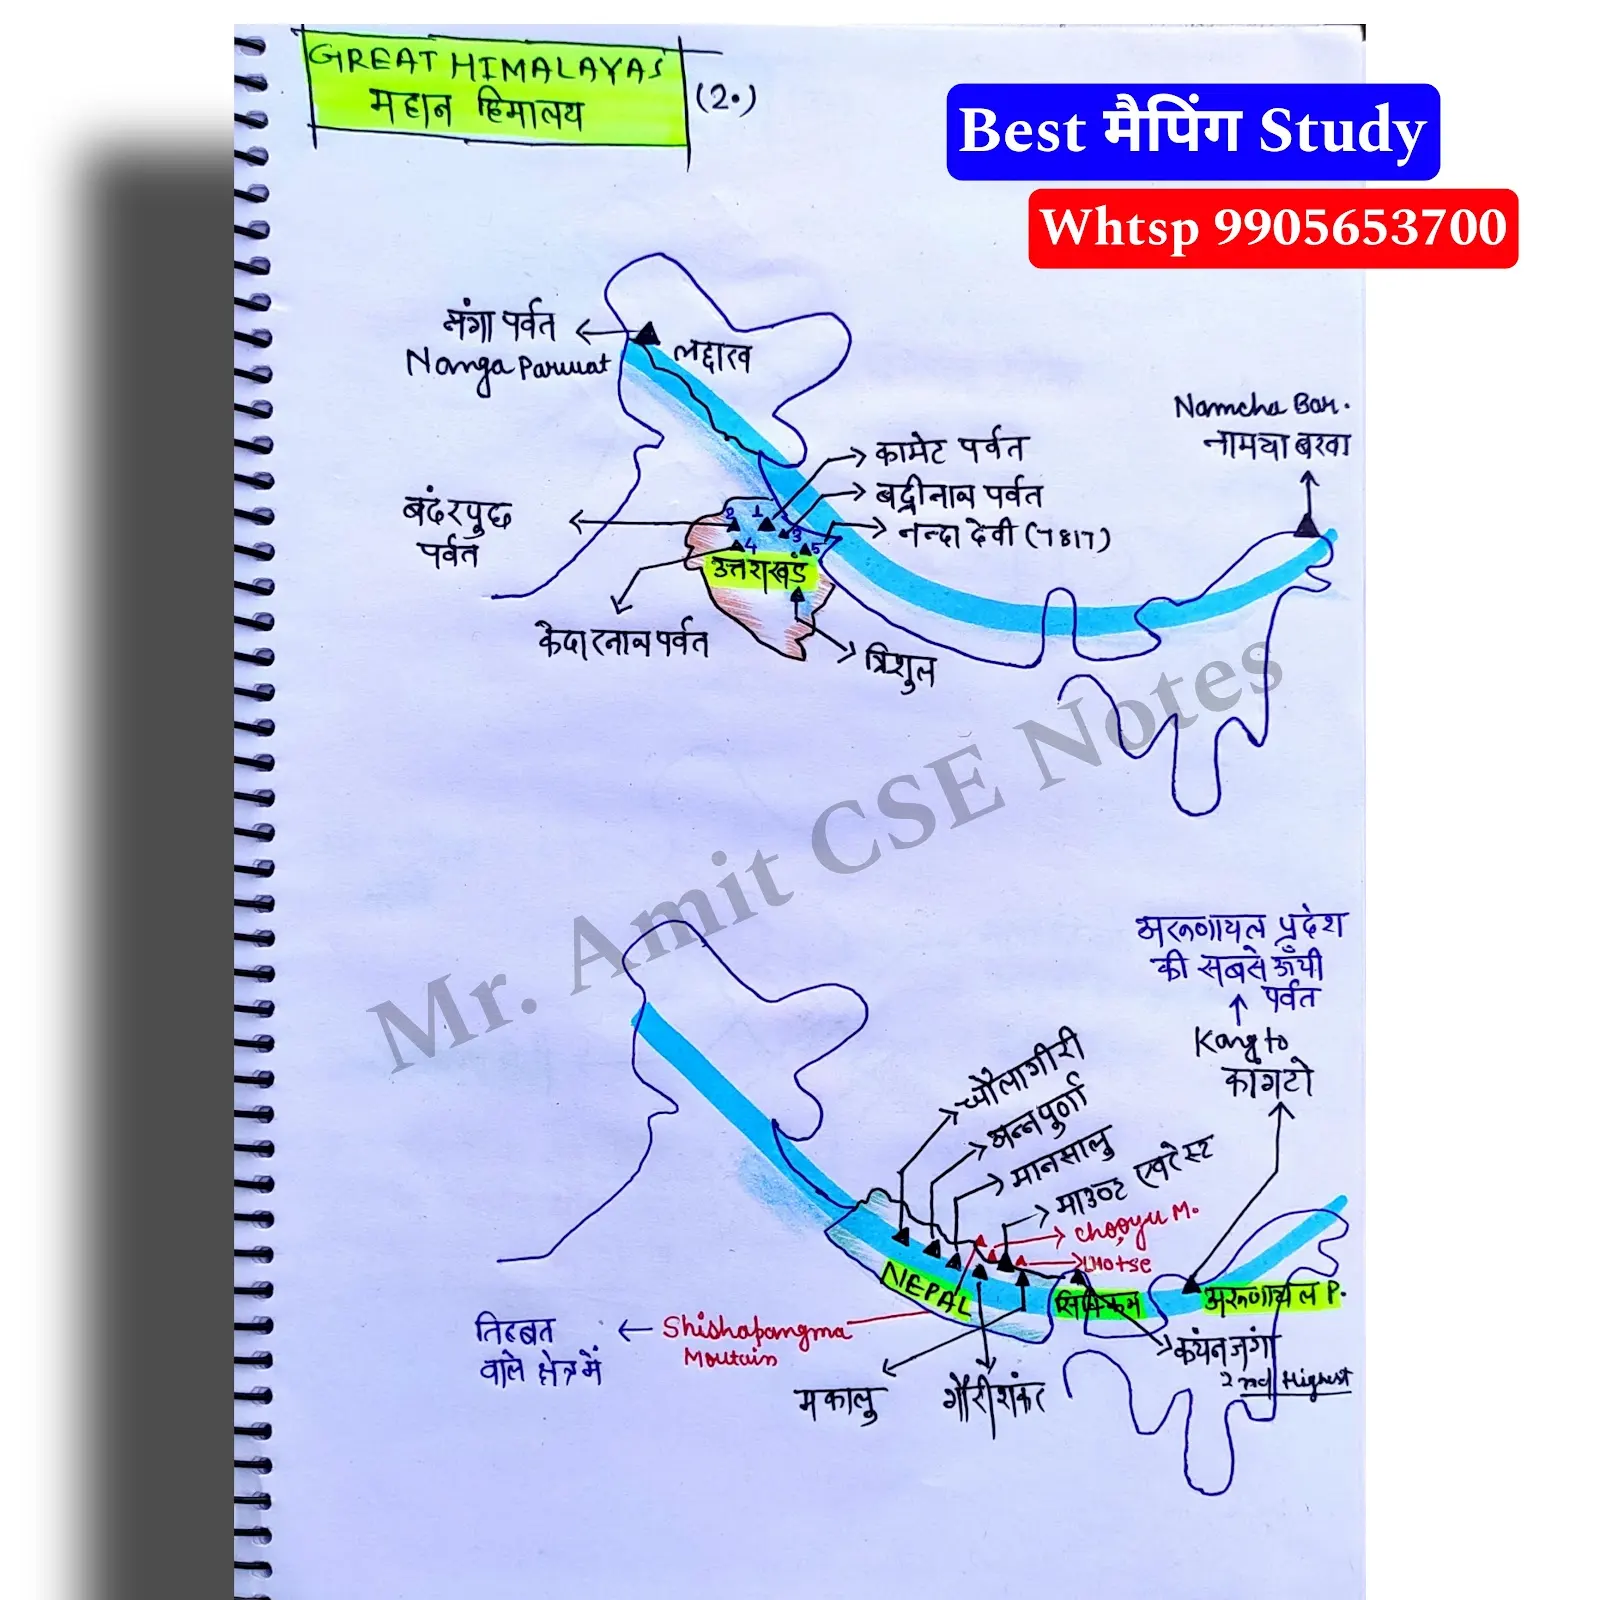 GREAT HIMALAYAS
महान हिमालय
(2.)
Best मैपिंग Study
Whtsp 9905653700
नंगा पर्वत
Nanga Parwat
लद्दाख
Namcha Bar.
नामचा बरवा
कामेट पर्वत
बद्रीनाथ पर्वत
नन्दा देवी (7817)
बंदरपुछ
पर्वत
2 1
3
4 5
उत्तराखंड
केदारनाथ पर्वत
त्रिशुल
Mr. Amit CSE Notes
अरुणाचल प्रदेश
की सबसे ऊँची
पर्वत
Kangto
कांगटो
धौलागीरी
अन्नपुर्णा
मानसालु
माउण्ट एवरेस्ट
Chooyu M.
LHOtse
NEPAL
सिक्किम
अरुणाचल P.
तिब्बत
वाले क्षेत्र में
Shishapangma
Moutain
कंचनजंगा
2nd Highest
मकालु
गौरीशंकर